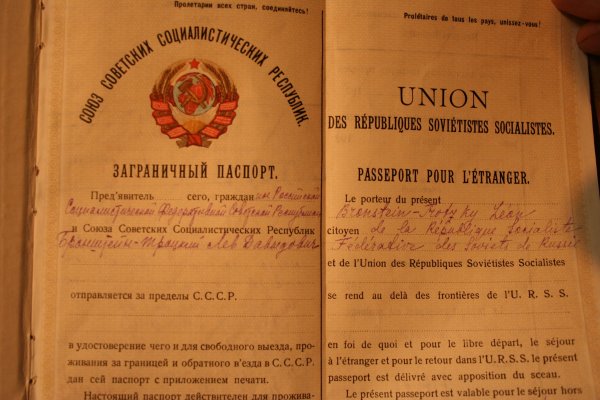 Пролетарии всех стран, соединяйтесь!
СОЮЗ СОВЕТСКИХ СОЦИАЛИСТИЧЕСКИХ РЕСПУБЛИК.
ЗАГРАНИЧНЫЙ ПАСПОРТ.
Пред'явитель сего, гражданин Российской
Социалистической Федеративной Советской Республики
и Союза Советских Социалистических Республик
Бронштейн-Троцкий Лев Давыдович
отправляется за пределы С.С.С.Р.
в удостоверение чего и для свободного выезда, про-
живания за границей и обратного в'езда в С.С.С.Р.
дан сей паспорт с приложением печати.
Настоящий паспорт действителен для прожива-
Prolétaires de tous les pays, unissez-vous!
UNION
DES RÉPUBLIQUES SOVIÉTISTES SOCIALISTES.
PASSEPORT POUR L'ÉTRANGER.
Le porteur du présent
Bronstein-Trotzky Léon
citoyen de la République Socialiste
Fédérative des Soviets de Russie
et de l'Union des Républiques Soviétistes Socialistes
se rend au delà des frontières de l'U. R. S. S.
en foi de quoi et pour le libre départ, le séjour
à l'étranger et pour le retour dans l'U.R.S.S. le présent
passeport est délivré avec apposition du sceau.
Le présent passeport est valable pour le séjour hors